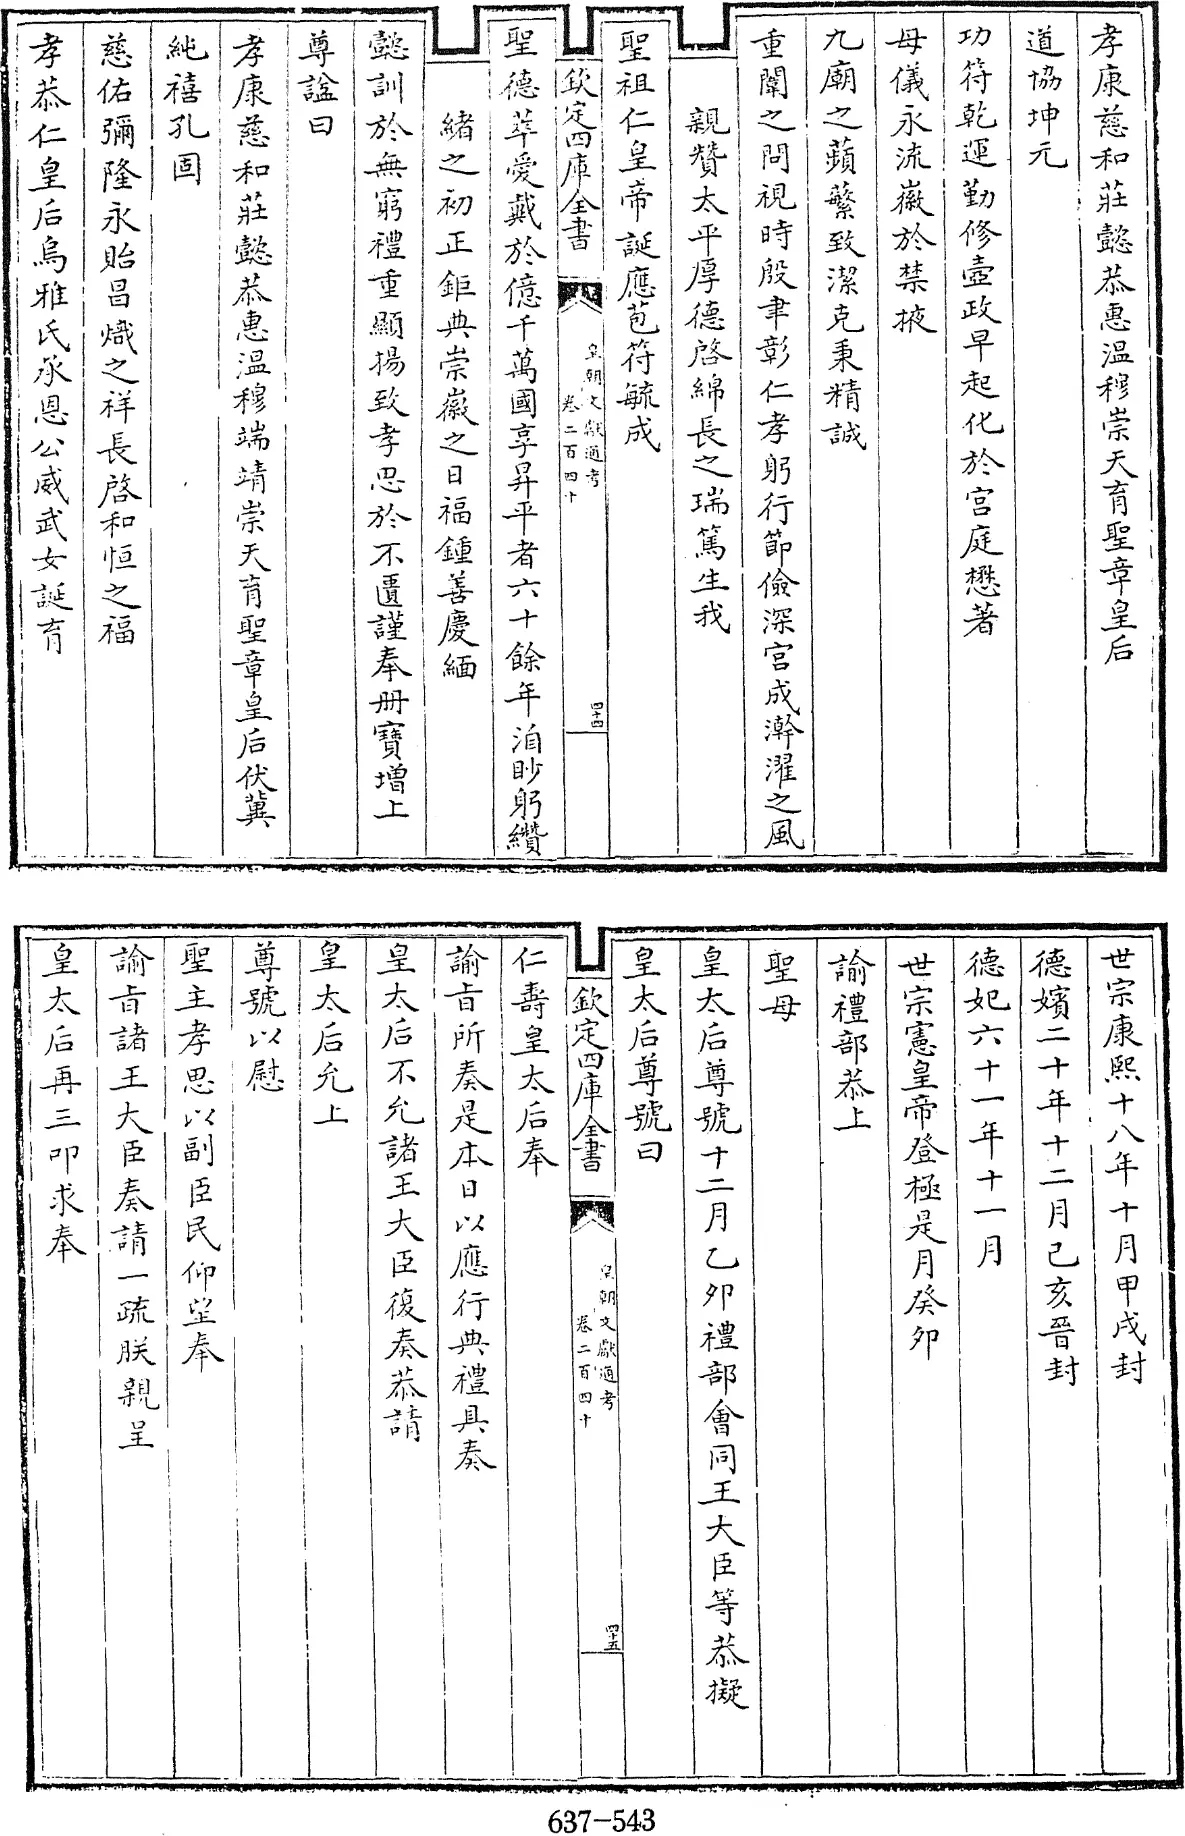 孝康慈和莊懿恭惠溫穆崇天育聖章皇后
道協坤元
功符乾運勤修壼政早起化於宫庭懋著
母儀永流徽於禁掖
九廟之蘋蘩致潔克秉精誠
重闈之問視時殷聿彰仁孝躬行節儉深宫成澣濯之風
親贊太平厚德啓綿長之瑞篤生我
聖祖仁皇帝誕應苞符毓成
欽定四庫全書
皇朝文獻通考
卷二百四十
四十四
聖德萃愛戴於億千萬國享昇平者六十餘年洎眇躬纘
緒之初正鉅典崇徽之日福鍾善慶緬
懿訓於無窮禮重顯揚致孝思於不匱謹奉册寶增上
尊諡曰
孝康慈和莊懿恭惠溫穆端靖崇天育聖章皇后伏冀
純禧孔固
慈佑彌隆永貽昌熾之祥長啓和恒之福
孝恭仁皇后烏雅氏承恩公威武女誕育
世宗康熙十八年十月甲戌封
德嬪二十年十二月己亥晉封
德妃六十一年十一月
世宗憲皇帝登極是月癸卯
諭禮部恭上
聖母
皇太后尊號十二月乙卯禮部會同王大臣等恭擬
皇太后尊號曰
欽定四庫全書
皇朝文獻通考
卷二百四十
四十五
仁壽皇太后奉
諭旨所奏是本日以應行典禮具奏
皇太后不允諸王大臣復奏恭請
皇太后允上
尊號以慰
聖主孝思以副臣民仰望奉
諭旨諸王大臣奏請一疏朕親呈
皇太后再三叩求奉
637-543